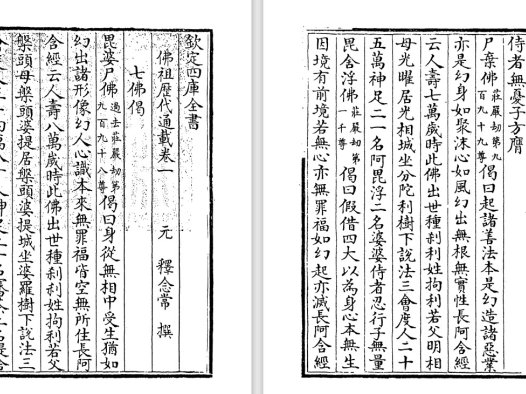 欽定四庫全書
佛祖歷代通載卷一 元 釋念常 撰
七佛偈
毘婆尸佛過去莊嚴劫第九百九十八尊偈曰身從無相中受生猶如
幻出諸形像幻人心識本來無罪福皆空無所住長阿
含經云人壽八萬歲時此佛出世種刹利姓拘利若父
槃頭母槃頭婆提居槃頭婆提城坐婆羅樹下說法三
侍者無憂子方膺
尸棄佛莊嚴劫第九百九十九尊偈曰起諸善法本是幻造諸惡業
亦是幻身如聚沫心如風幻出無根無實性長阿含經
云人壽七萬歲時此佛出世種刹利姓拘利若父明相
母光曜居光相城坐分陀利樹下說法三會度人二十
五萬神足二一名阿毘浮二名婆婆侍者忍行子無量
毘舍浮佛莊嚴劫第一千尊偈曰假借四大以為身心本無生
因境有前境若無心亦無罪福如幻起亦滅長阿含經